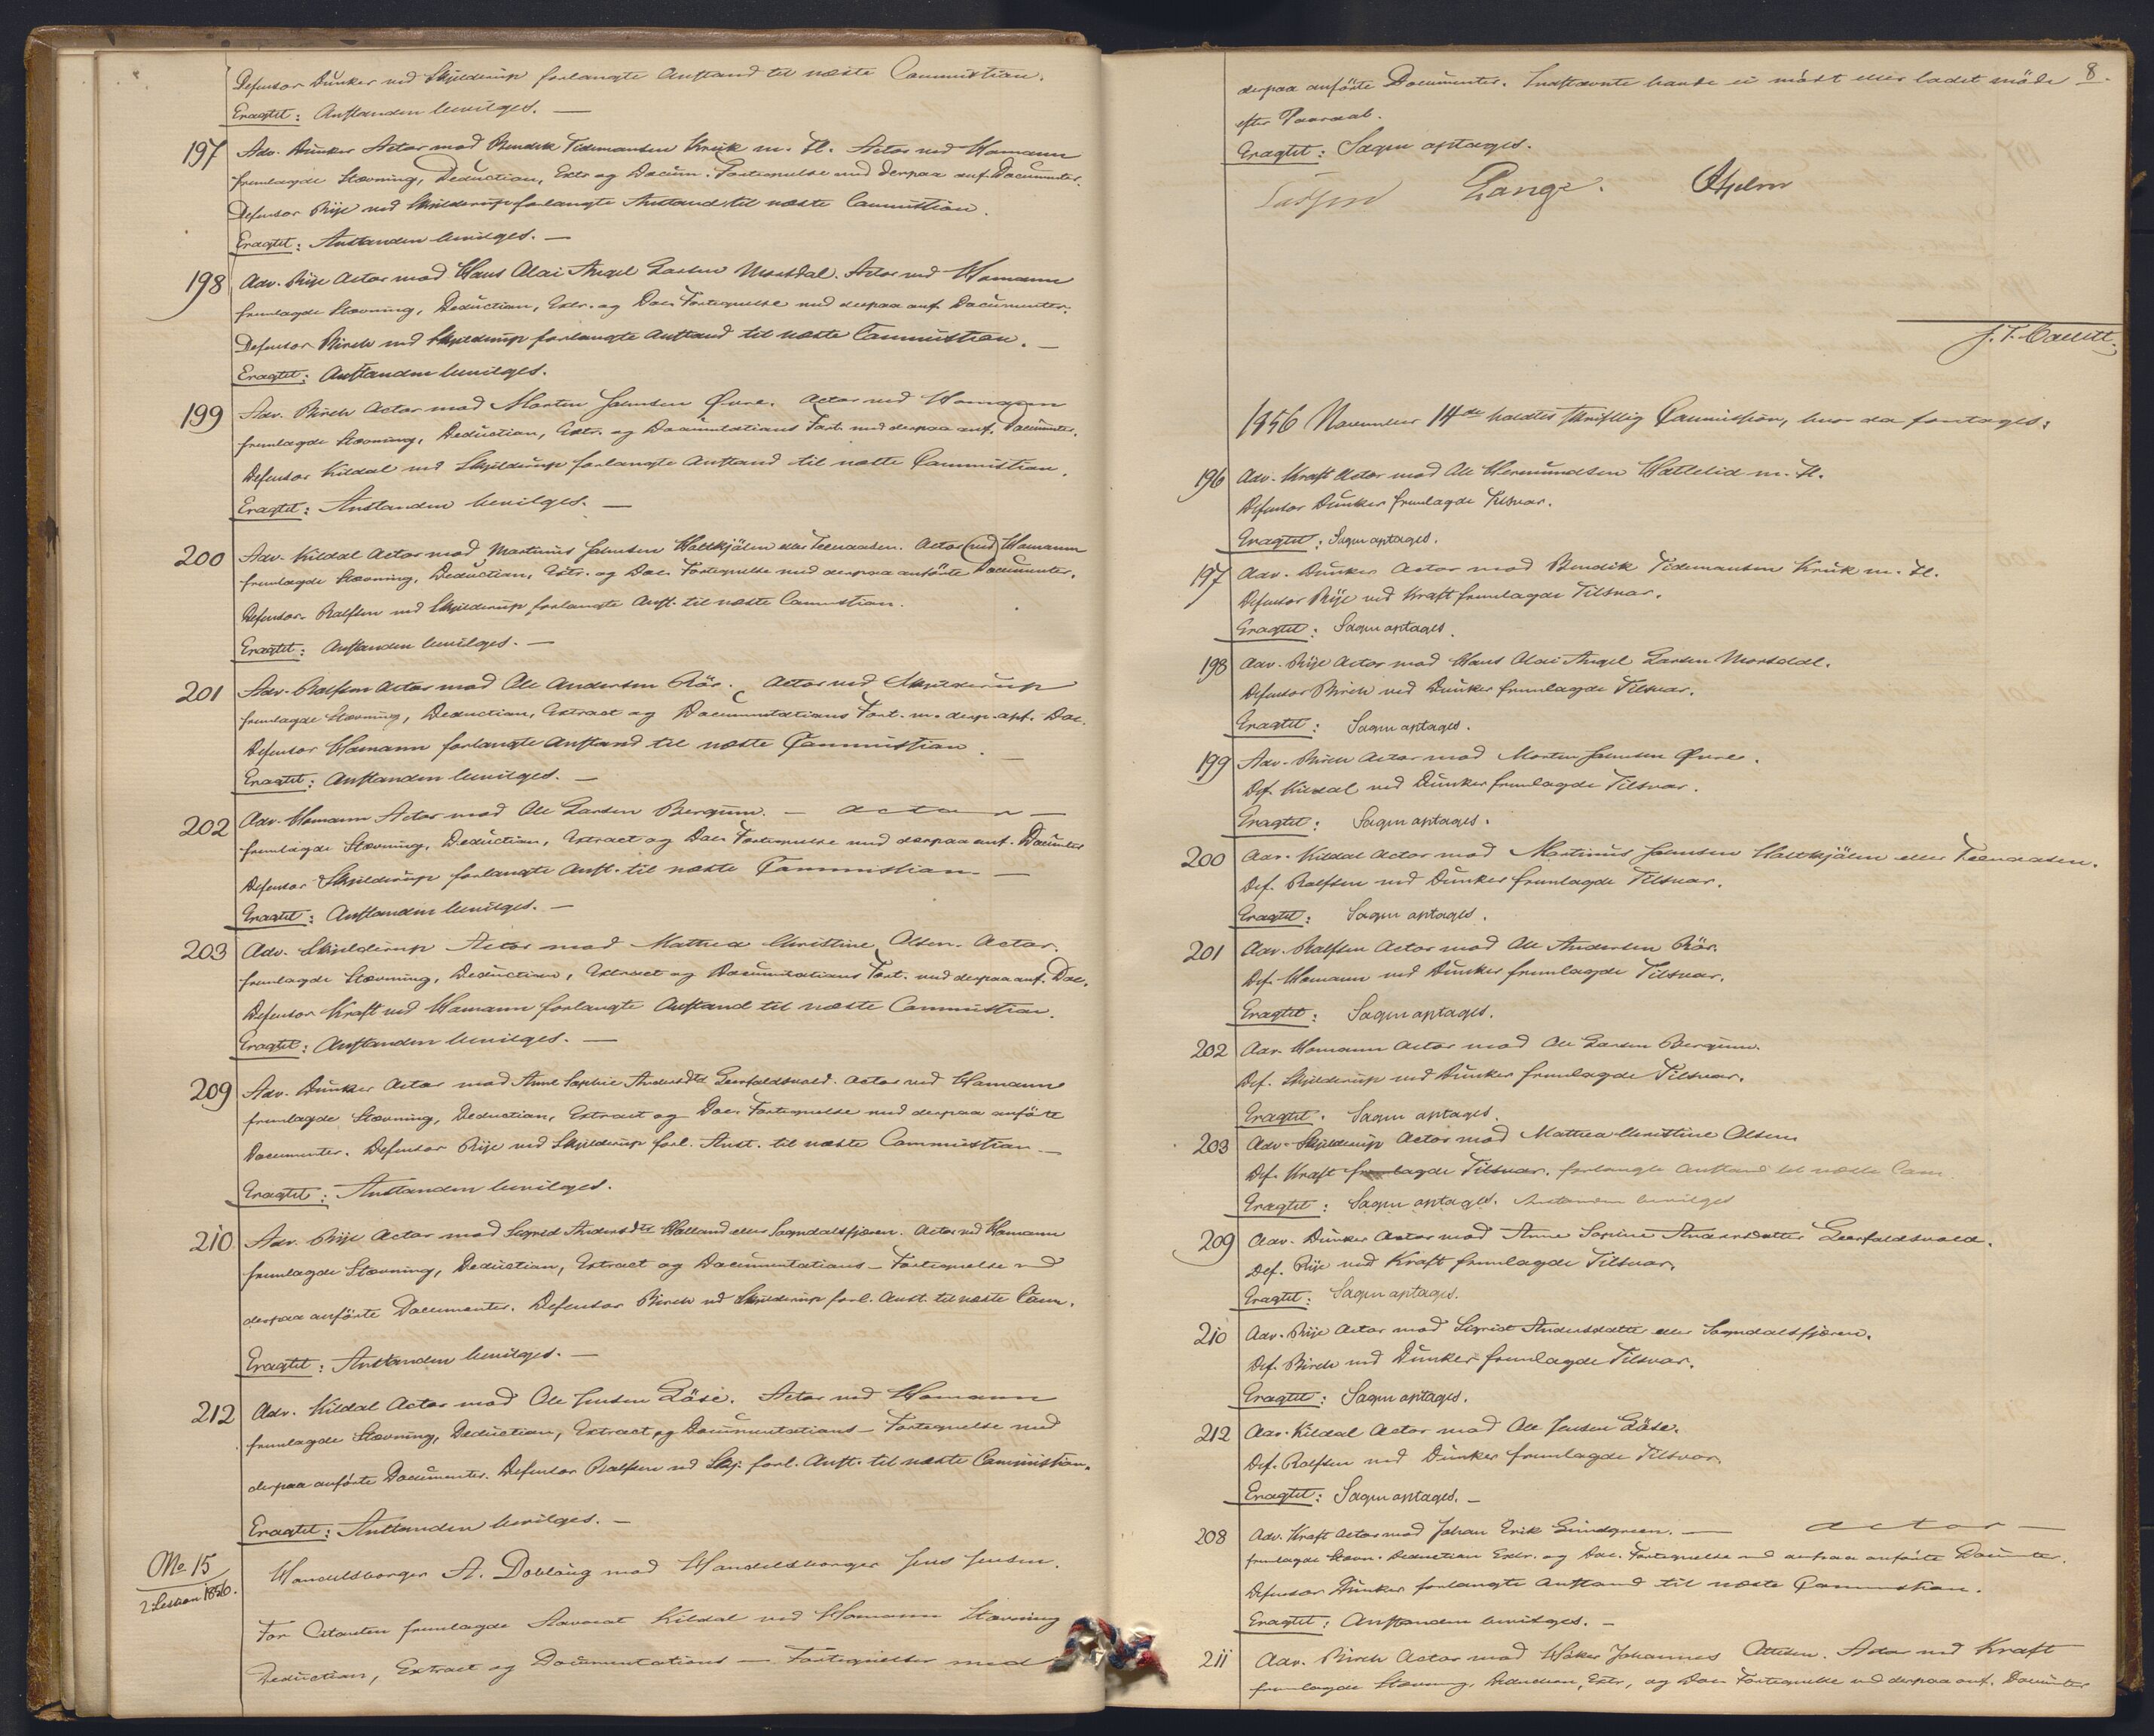 Defensor Dunker ved Skjelderup forlangte Anstand til næste Commission.
Eragtet: Anstanden bevilges. —
197 Adv. Dunker Actor mod Bendik Tidemansen Kruk m. Fl. Actor ved Homann
fremlagde Stævning, Deduction, Extr og Docum. Fortegnelse med derpaa anf. Documenter.
Defensor Rije ved Skjelderup forlangte Anstand til næste Commission.
Eragtet: Anstanden bevilges. —
198 Adv. Rije Actor mod Hans Olai Angel Larsen Morsdal. Actor ved Homann
fremlagde Stævning, Deduction, Extr. og Doc. Fortegnelse med derpaa anf. Documenter.
Defensor Birch ved Skjelderup forlangte Anstand til næste Commission. —
Eragtet: Anstanden bevilges.
199 Adv. Birch Actor mod Morten Johnsen Øvre. Actor ved Homann
fremlagde Stævning, Deduction, Extr. og Documentations Fort. med derpaa anf. Documenter.
Defensor Kildal ved Skjelderup forlangte Anstand til næste Commission.
Eragtet: Anstanden bevilges. —
200 Adv. Kildal Actor mod Martinus Johnsen Holtkjølen eller Teenaasen. Actor (ved) Homann
fremlagde Stævning, Deduction, Extr. og Doc. Fortegnelse med derpaa anførte Documenter.
Defensor Rolfsen ved Skjelderup forlangte Anst. til næste Commission.
Eragtet: Anstanden bevilges. —
201 Adv. Rolfsen Actor mod Ole Andersen Rör. Actor ved Skjelderup
fremlagde Stævning, Deduction, Extract og Documentations Fort. m. derp. anf. Doc.
Defensor Homann forlangte Anstand til næste Commission.
Eragtet: Anstanden bevilges. —
202 Adv. Homann Actor mod Ole Larsen Bergum. — Actor —
fremlagde Stævning, Deduction, Extract og Doc. Fortegnelse med derpaa anf. Documenter
Defensor Skjelderup forlangte Anst. til næste Commission. —
Eragtet: Anstanden bevilges. —
203 Adv. Skjelderup Actor mod Mathea Christine Olsen. Actor.
fremlagde Stævning, Deduction, Extract og Documentations Fort. med derpaa anf. Doc.
Defensor Kraft ved Homann forlangte Anstand til næste Commission.
Eragtet: Anstanden bevilges. —
209 Adv. Dunker Actor mod Anne Sophie Andersdtr Leerfaldsvald. Actor ved Homann
fremlagde Stævning, Deduction, Extract og Doc. Fortegnelse med derpaa anförte
Documenter. Defensor Rije ved Skjelderup forl. Anst. til næste Commission —
Eragtet: Anstanden bevilges.
210 Adv. Rije Actor mod Sigrid Andersdtr Holland eller Sogndalsfjæren. Actor ved Homann
fremlagde Stævning, Deduction, Extract og Documentations-Fortegnelse med
derpaa anförte Documenter. Defensor Birch ved Skjelderup forl. Anst. til næste Com.
Eragtet: Anstanden bevilges. —
212 Adv. Kildal Actor mod Ole Jensen Låse. Actor ved Homann
fremlagde Stævning, Deduction, Extract og Documentations-Fortegnelse med
derpaa anførte Documenter. Defensor Rolfsen ved Skj. forl. Anst. til næste Commission.
Eragtet: Anstanden bevilges. —
No 15
2 Session 1856.
Handelsborger A. Dobloug mod Handelsborger Jens Jensen.
For Citanten fremlagde Advocat Kildal ved Homann Stævning
Deduction, Extract og Documentations-Fortegnelse med
8.
derpaa anførte Documenter. Indstævnte havde ei mödt eller ladet möde
efter Paaraab.
Eragtet: Sagen optages.
Lange.
1856 November 14de holdtes skriftlig Commission, hvor da foretages:
196 Adv. Kraft Actor mod Ole Hermundsen Hatlelid m. Fl.
Defensor Dunker fremlagde Tilsvar.
Eragtet: Sagen optages.
197 Adv. Dunker Actor mod Bendik Tidemansen Kruk m. Fl.
Defensor Rije ved Kraft fremlagde Tilsvar.
Eragtet: Sagen optages.
198 Adv. Rije Actor mod Hans Olai Angel Larsen Morsdal.
Defensor Birch ved Dunker fremlagde Tilsvar.
Eragtet: Sagen optages.
199 Adv. Birch Actor mod Morten Johnsen Øvre.
Def. Kildal ved Dunker fremlagde Tilsvar.
Eragtet: Sagen optages.
200 Adv. Kildal Actor mod Martinus Johnsen Holtkjölen eller Teenaasen.
Def. Rolfsen ved Dunker fremlagde Tilsvar.
Eragtet: Sagen optages.
201 Adv. Rolfsen Actor mod Ole Andersen Rör.
Def. Homann ved Dunker fremlagde Tilsvar.
Eragtet: Sagen optages.
202 Adv. Homann Actor mod Ole Larsen Bergum.
Def. Skjelderup ved Dunker fremlagde Tilsvar.
Eragtet. Sagen optages.
203 Adv. Skjelderup Actor mod Mathea Christine Olsen
Def. Kraft fremlagde Tilsvar. forlangte Anstand til næste Com
Eragtet: Sagen optages. Anstanden bevilges
209 Adv. Dunker Actor mod Anne Sophie Andersdatter Leerfaldsvald.
Def. Rije ved Kraft fremlagde Tilsvar.
Eragtet: Sagen optages.
210 Adv. Rije Actor mod Sigrid Andersdatter eller Sogndalsfjæren.
Def. Birch ved Dunker fremlagde Tilsvar.
Eragtet: Sagen optages.
212 Adv. Kildal Actor mod Ole Jensen Låse.
Def. Rolfsen ved Dunker fremlagde Tilsvar.
Eragtet: Sagen optages. —
208 Adv. Kraft Actor mod Johan Erik Lundgreen. — Actor —
fremlagde Stævn. Deduction Extr. og Doc. Fortegnelse med derpaa anförte Documenter.
Defensor Dunker forlangte Anstand til næste Commission.
Eragtet: Anstanden bevilges. —
211 Adv. Birch Actor mod Johannes Actor ved Kraft
fremlagde Stævning, Deduction, Extr, og Doc. Fortegnelse med derpaa anf. Documenter